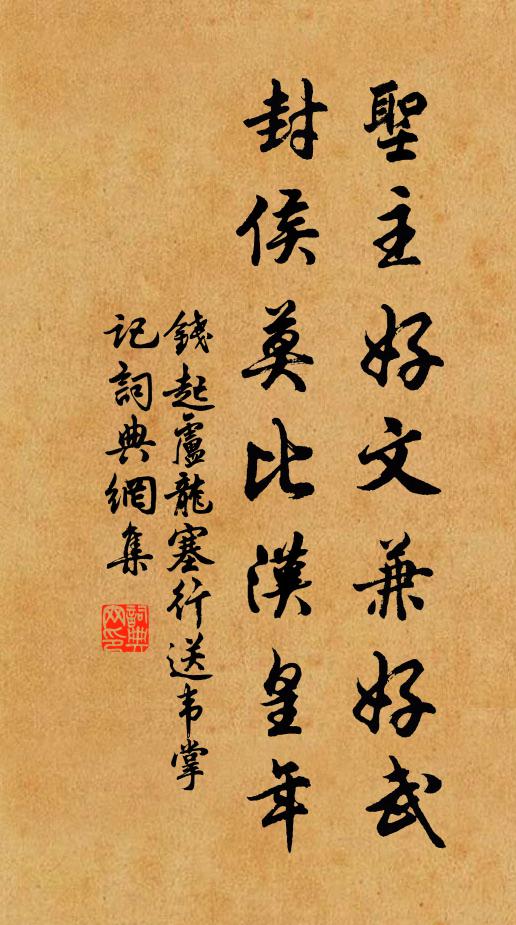 聖主好文兼好武
封侯莫比漢皇年
錢起盧龍塞行送韦掌
記詞典網集
詞典
网印